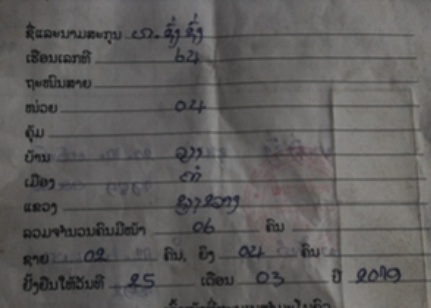 ຊື່ແລະນາມສະກຸນ
ເຮືອນເລກທີ 64
ຖະໜົນສາຍ
ໜ່ວຍ 04
ຄຸ້ມ
ບ້ານ
ເມືອງ ຄຳ
ແຂວງ ຊຽງຂວາງ
ລວມຈຳນວນຄົນມີໜ້າ 06 ຄົນ
ຊາຍ 02 ຄົນ, ຍິງ 04 ຄົນ
ຢັ້ງຢືນໃຫ້ວັນທີ 25 ເດືອນ 03 ປີ 2019